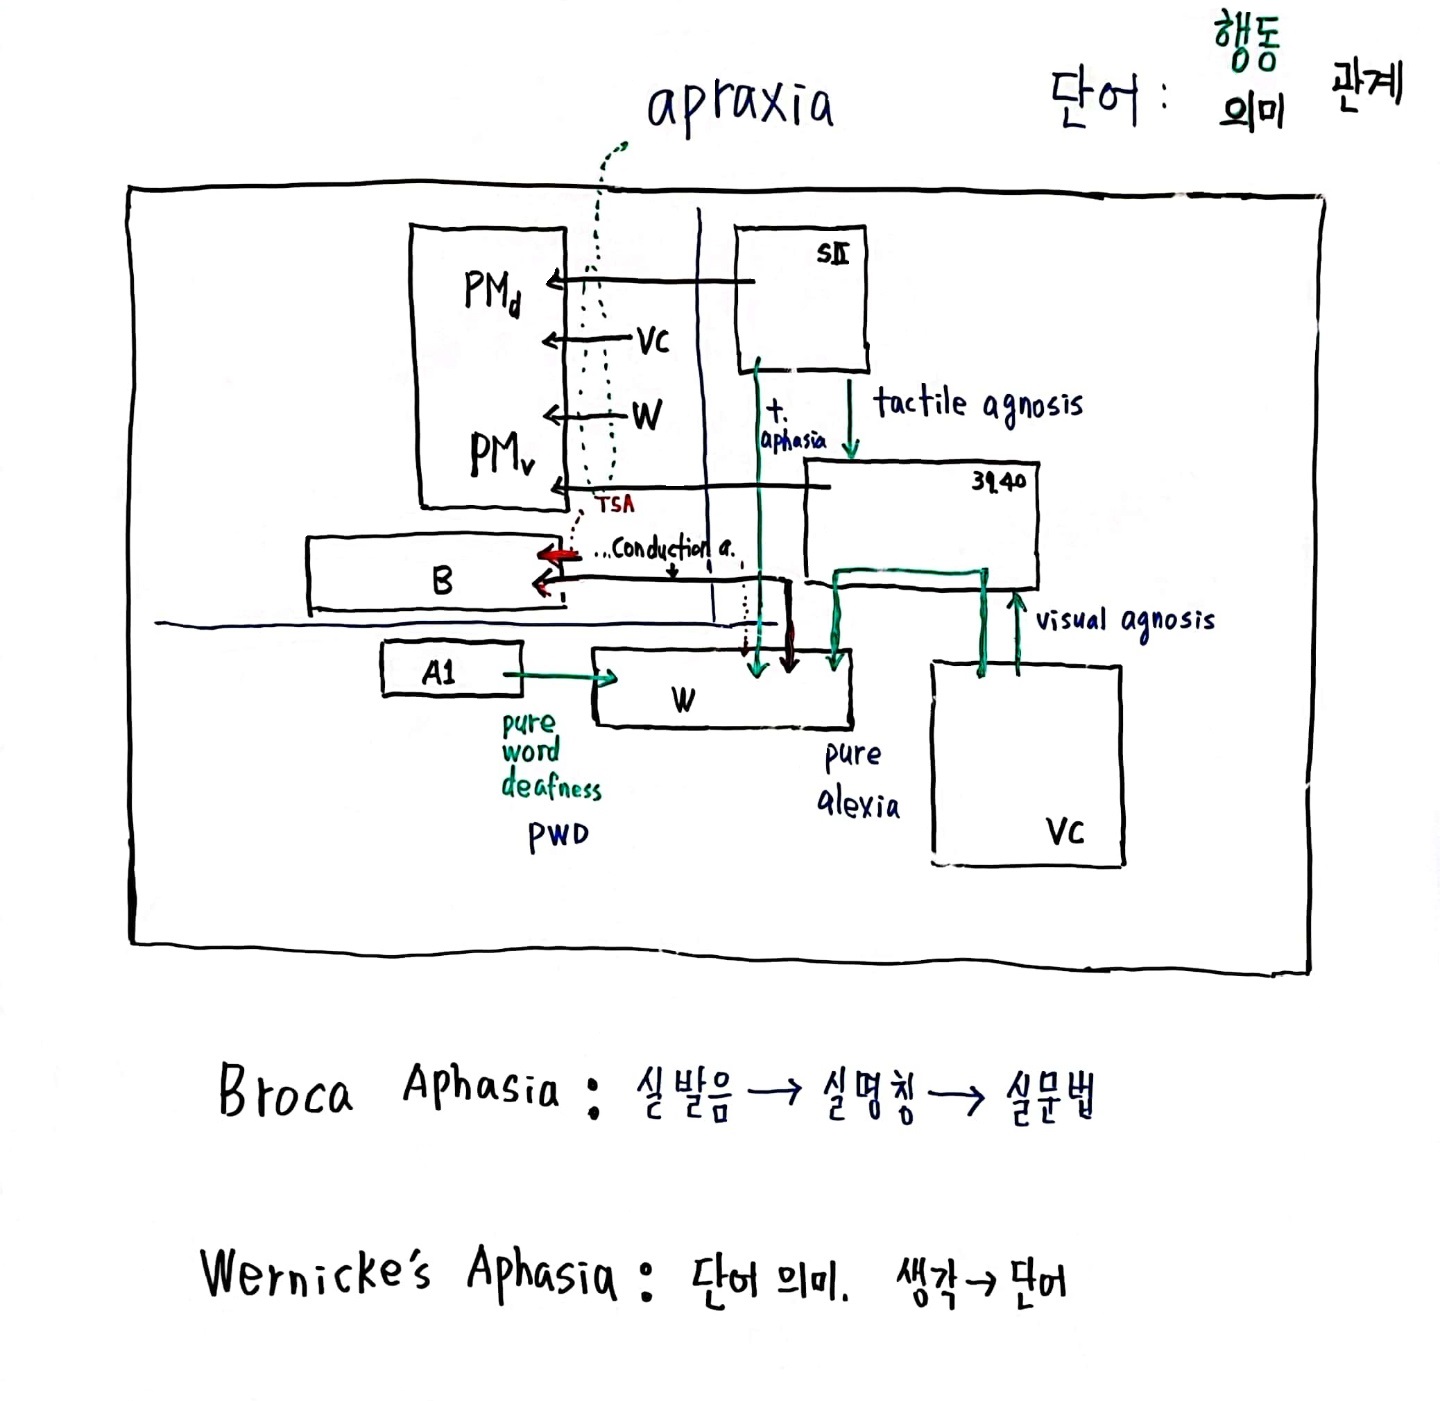 행동
apraxia
단어 : 의미 관계
SⅡ
PMd
VC
W
PMv
t.
aphasia
tactile agnosis
39.40
TSA
...Conduction a.
B
visual agnosis
A1
W
pure
word
deafness
PWD
pure
alexia
VC
Broca Aphasia : 실발음 → 실명칭 → 실문법
Wernicke's Aphasia : 단어 의미. 생각→단어